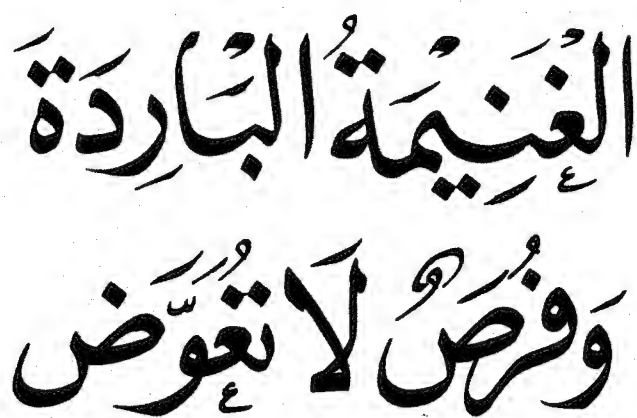 الغَنِيْمَةُ البَارِدَةَ
وَفُرَصٌ لَا تُعَوَّض